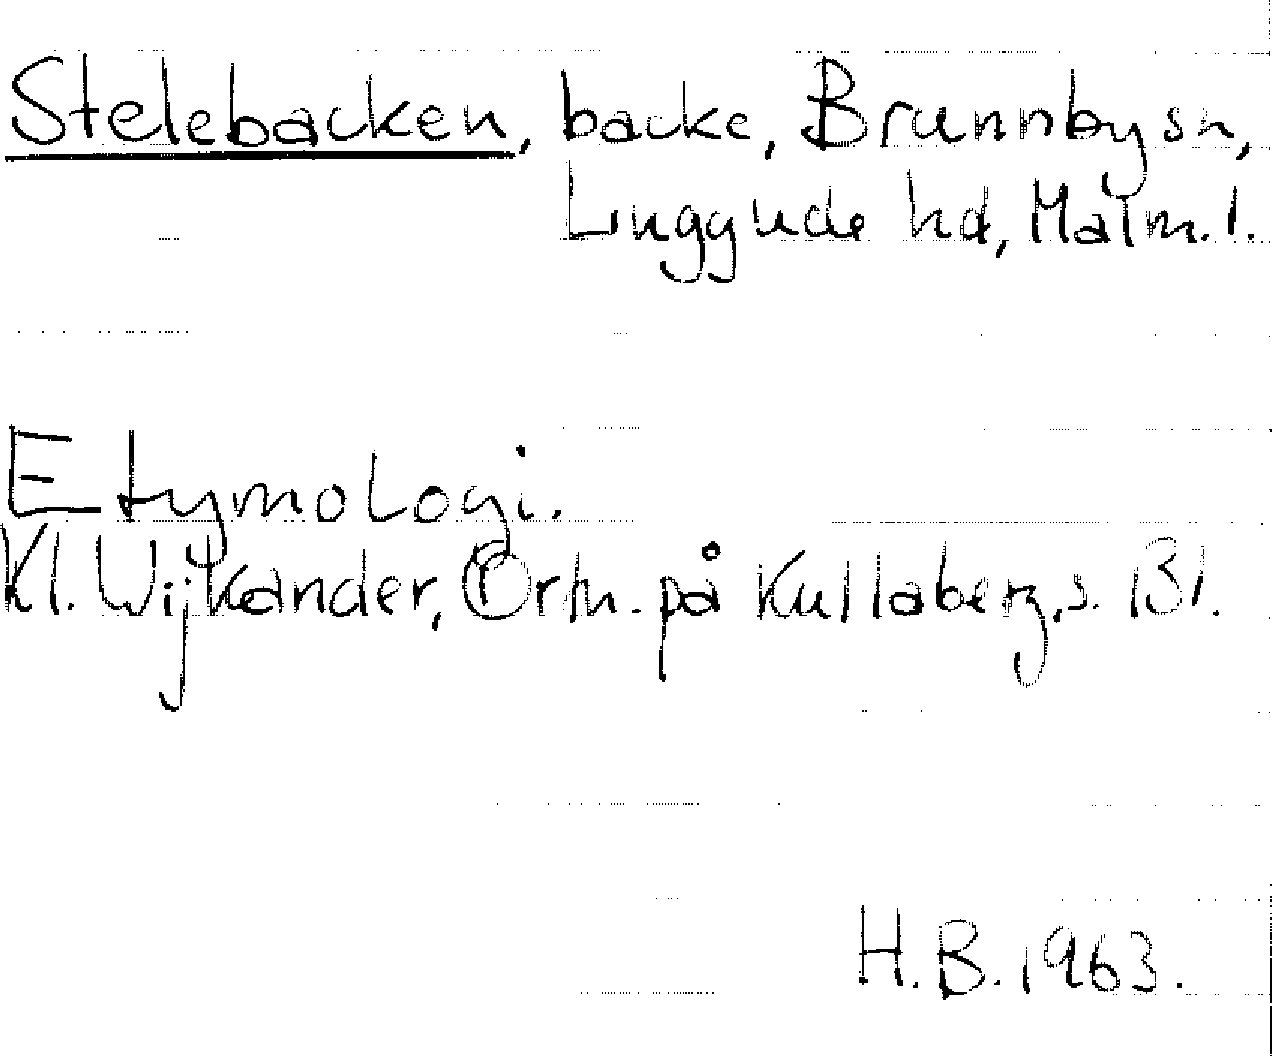 Stelebacken, backe, Brunnby sn,
Luggude hd, Malm. l.
Etymologi.
Kl. Wijkander, Ortn. på Kullaberg, s. 131.
H.B. 1963.